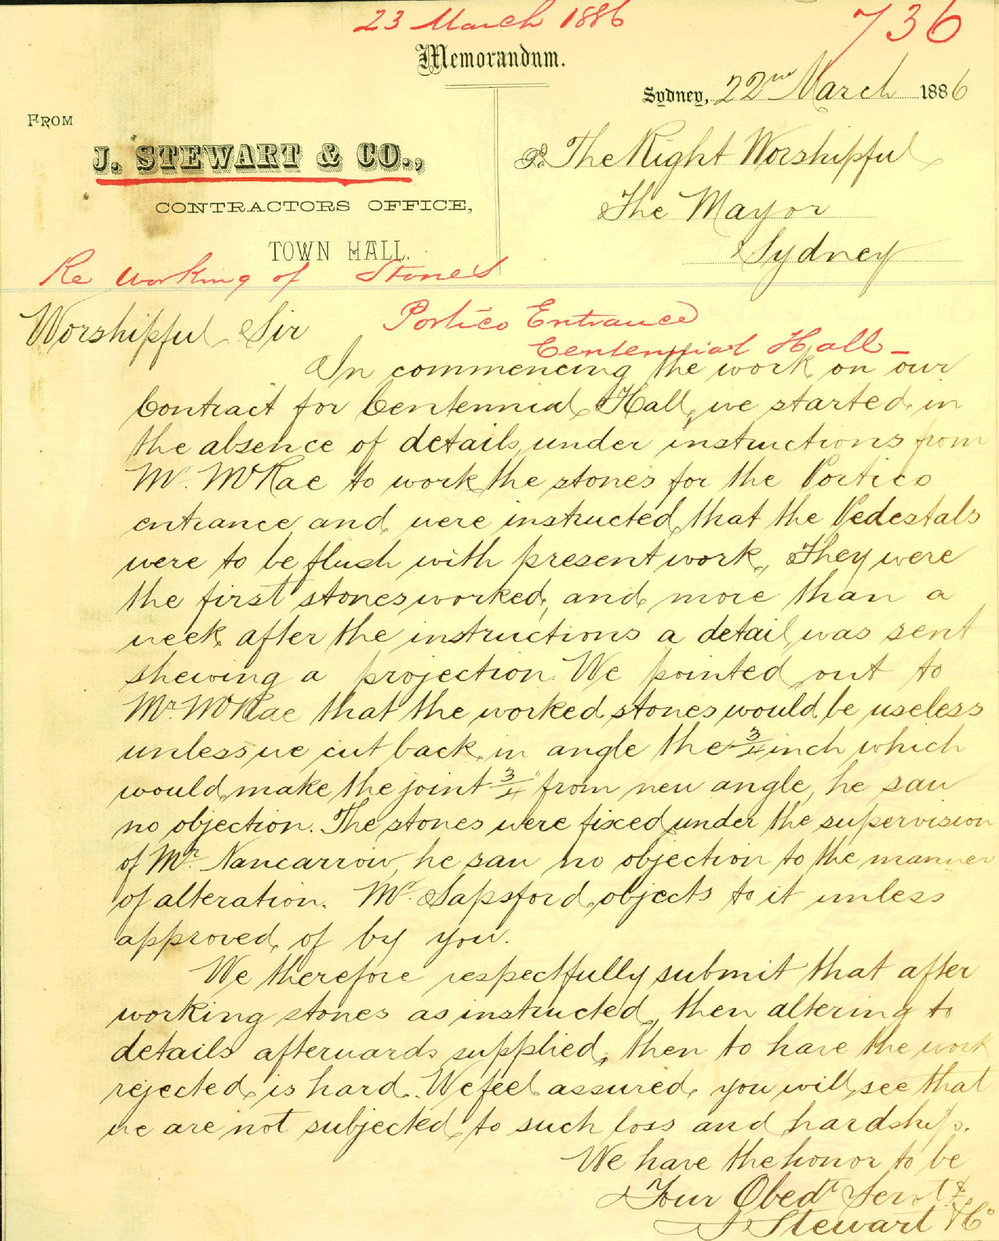 23 March 1886
736
Memorandum.
Sydney, 22nd March 1886
FROM
J. STEWART & CO.,
CONTRACTORS OFFICE,
TOWN HALL.
To The Right Worshipful
The Mayor
Sydney
Re Working of Stones
Portico Entrance
Centennial Hall -
Worshipful Sir
In commencing the work on our
Contract for Centennial Hall, we started in
the absence of details, under instructions from
Mr. McRae to work the stones for the Portico
entrance and were instructed that the Pedestals
were to be flush with present work, They were
the first stones worked, and more than a
week after the instructions a detail was sent
shewing a projection. We pointed out to
Mr. McRae that the worked stones would be useless
unless we cut back in angle the 3/4 inch which
would make the joint 3/4" from new angle, he saw
no objection. The stones were fixed under the supervision
of Mr. Nancarrow, he saw no objection to the manner
of alteration. Mr. Sapsford objects to it unless
approved of by you.
We therefore respectfully submit that after
working stones as instructed, then altering to
details afterwards supplied, then to have the work
rejected is hard. We feel assured you will see that
we are not subjected to such loss and hardship.
We have the honor to be
Your Obedt Servts
J Stewart & Co